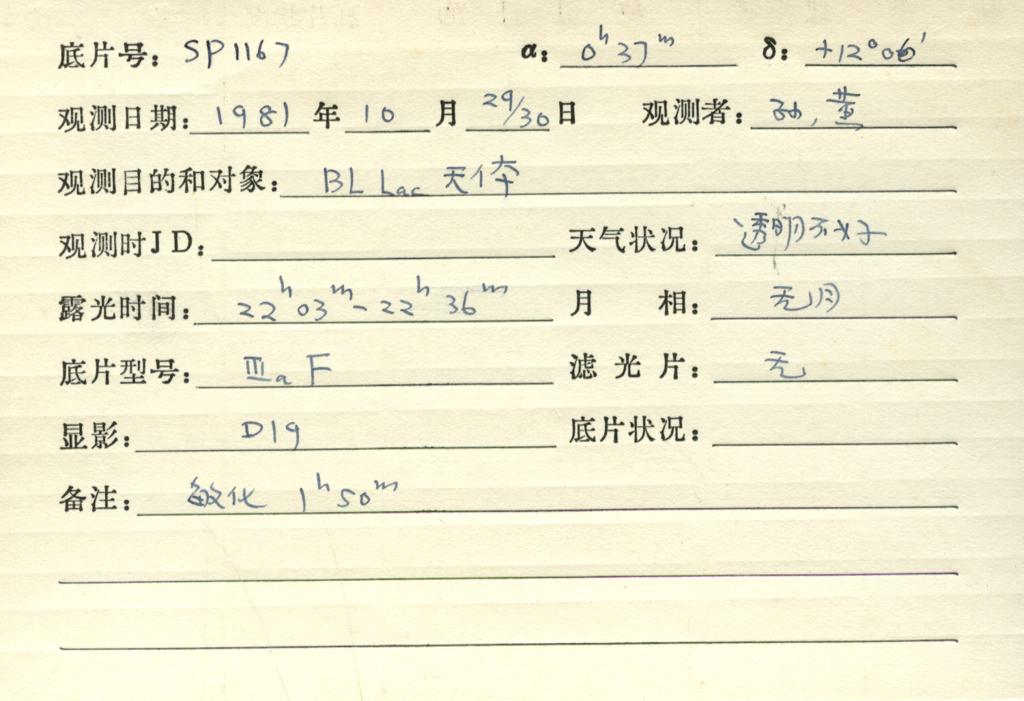 底片号: SP1167 α: 0ʰ37ᵐ δ: +12°06′
观测日期: 1981 年 10 月 29/30 日 观测者: 孙, 黄
观测目的和对象: BL Lac 天体
观测时JD: 天气状况: 透明不好
露光时间: 22ʰ03ᵐ-22ʰ36ᵐ 月 相: 无月
底片型号: ⅢaF 滤光片: 无
显影: D19 底片状况:
备注: 敏化 1ʰ50ᵐ